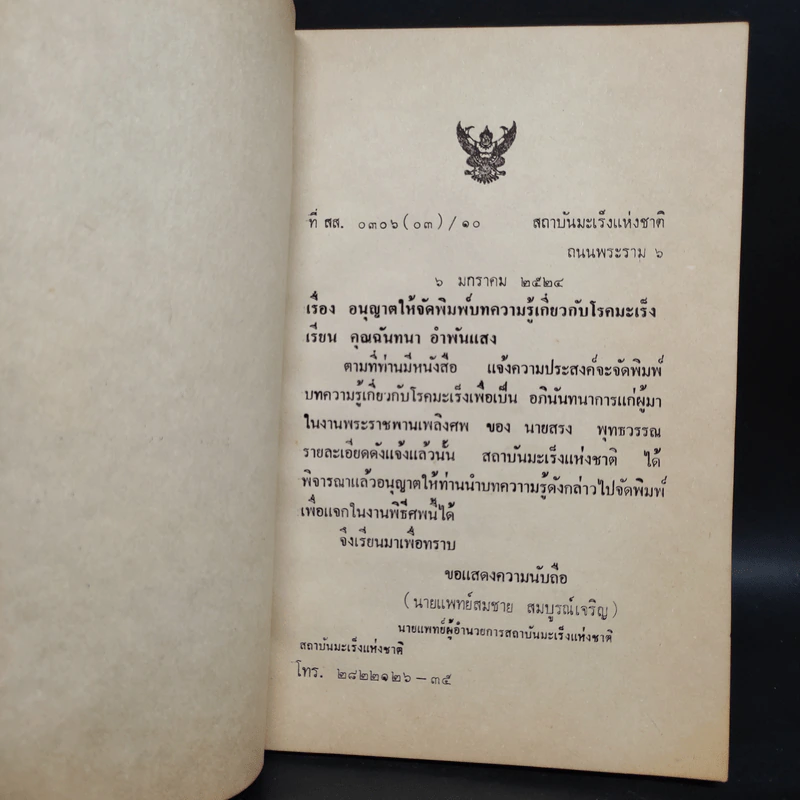 ที่ สส. ๐๓๐๖(๐๓)/๑๐ สถาบันมะเร็งแห่งชาติ
ถนนพระราม ๖
๖ มกราคม ๒๕๒๔
เรื่อง อนุญาตให้จัดพิมพ์บทความรู้เกี่ยวกับโรคมะเร็ง
เรียน คุณฉันทนา อำพันแสง
ตามที่ท่านมีหนังสือ แจ้งความประสงค์จะจัดพิมพ์
บทความรู้เกี่ยวกับโรคมะเร็งเพื่อเป็น อภินันทนาการแก่ผู้มา
ในงานพระราชพานเพลิงศพ ของ นายสรง พุทธวรรณ
รายละเอียดดังแจ้งแล้วนั้น สถาบันมะเร็งแห่งชาติ ได้
พิจารณาแล้วอนุญาตให้ท่านนำบทความรู้ดังกล่าวไปจัดพิมพ์
เพื่อแจกในงานพิธีศพนี้ได้
จึงเรียนมาเพื่อทราบ
ขอแสดงความนับถือ
(นายแพทย์สมชาย สมบูรณ์เจริญ)
นายแพทย์ผู้อำนวยการสถาบันมะเร็งแห่งชาติ
สถาบันมะเร็งแห่งชาติ
โทร. ๒๘๒๒๑๒๖-๓๕